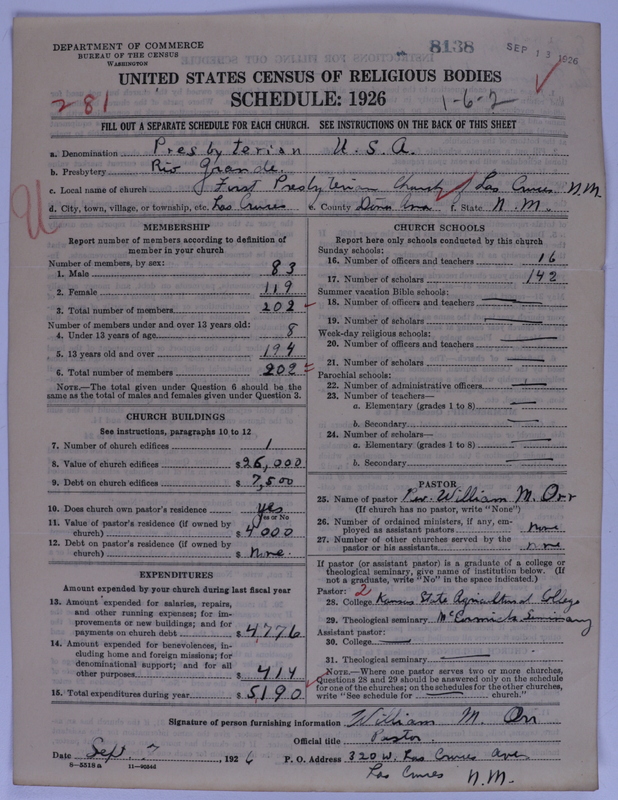 DEPARTMENT OF COMMERCE
BUREAU OF THE CENSUS
WASHINGTON
8138
SEP 13 1926
UNITED STATES CENSUS OF RELIGIOUS BODIES
281
SCHEDULE: 1926
1-6-2
FILL OUT A SEPARATE SCHEDULE FOR EACH CHURCH. SEE INSTRUCTIONS ON THE BACK OF THIS SHEET
a. Denomination Presbyterian U.S.A.
b. Presbytery Rio Grande.
c. Local name of church First Presbyterian Church of Las Cruces N.M.
d. City, town, village, or township, etc. Las Cruces e. County Dona Ana f. State N.M.
MEMBERSHIP
Report number of members according to definition of
member in your church
Number of members, by sex:
1. Male 83
2. Female 119
3. Total number of members 202
Number of members under and over 13 years old:
4. Under 13 years of age 8
5. 13 years old and over 194
6. Total number of members 202
NOTE.—The total given under Question 6 should be the
same as the total of males and females given under Question 3.
CHURCH BUILDINGS
See instructions, paragraphs 10 to 12
7. Number of church edifices 1
8. Value of church edifices $25,000
9. Debt on church edifices $7,500
10. Does church own pastor's residence? yes
Yes or No
11. Value of pastor's residence (if owned by
church) $4000
12. Debt on pastor's residence (if owned by
church) $None.
EXPENDITURES
Amount expended by your church during last fiscal year
13. Amount expended for salaries, repairs,
and other running expenses; for im-
provements or new buildings; and for
payments on church debt $4776
14. Amount expended for benevolences, in-
cluding home and foreign missions; for
denominational support; and for all
other purposes $414
15. Total expenditures during year $5190
CHURCH SCHOOLS
Report here only schools conducted by this church
Sunday schools:
16. Number of officers and teachers 16
17. Number of scholars 142
Summer vacation Bible schools:
18. Number of officers and teachers
19. Number of scholars
Week-day religious schools:
20. Number of officers and teachers
21. Number of scholars
Parochial schools:
22. Number of administrative officers
23. Number of teachers—
a. Elementary (grades 1 to 8)
b. Secondary
24. Number of scholars—
a. Elementary (grades 1 to 8)
b. Secondary
PASTOR
25. Name of pastor Rev. William M. Orr
(If church has no pastor, write "None")
26. Number of ordained ministers, if any, em-
ployed as assistant pastors none
27. Number of other churches served by the
pastor or his assistants none
If pastor (or assistant pastor) is a graduate of a college or
theological seminary, give name of institution below. (If
not a graduate, write "No" in the space indicated.)
Pastor: 2
28. College Kansas State Agricultural College
29. Theological seminary McCormick Seminary
Assistant pastor:
30. College
31. Theological seminary
NOTE.—Where one pastor serves two or more churches,
Questions 28 and 29 should be answered only on the schedule
for one of the churches; on the schedules for the other churches,
write "See schedule for church."
Signature of person furnishing information William M. Orr
Official title Pastor
Date Sep 7, 1926 P. O. Address 320 W. Las Cruces Ave.
8-5518 a 11-9034d
Las Cruces N.M.